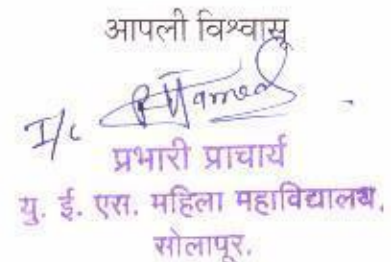 आपली विश्वासू
I/c
प्रभारी प्राचार्य
यु. ई. एस. महिला महाविद्यालय,
सोलापूर.